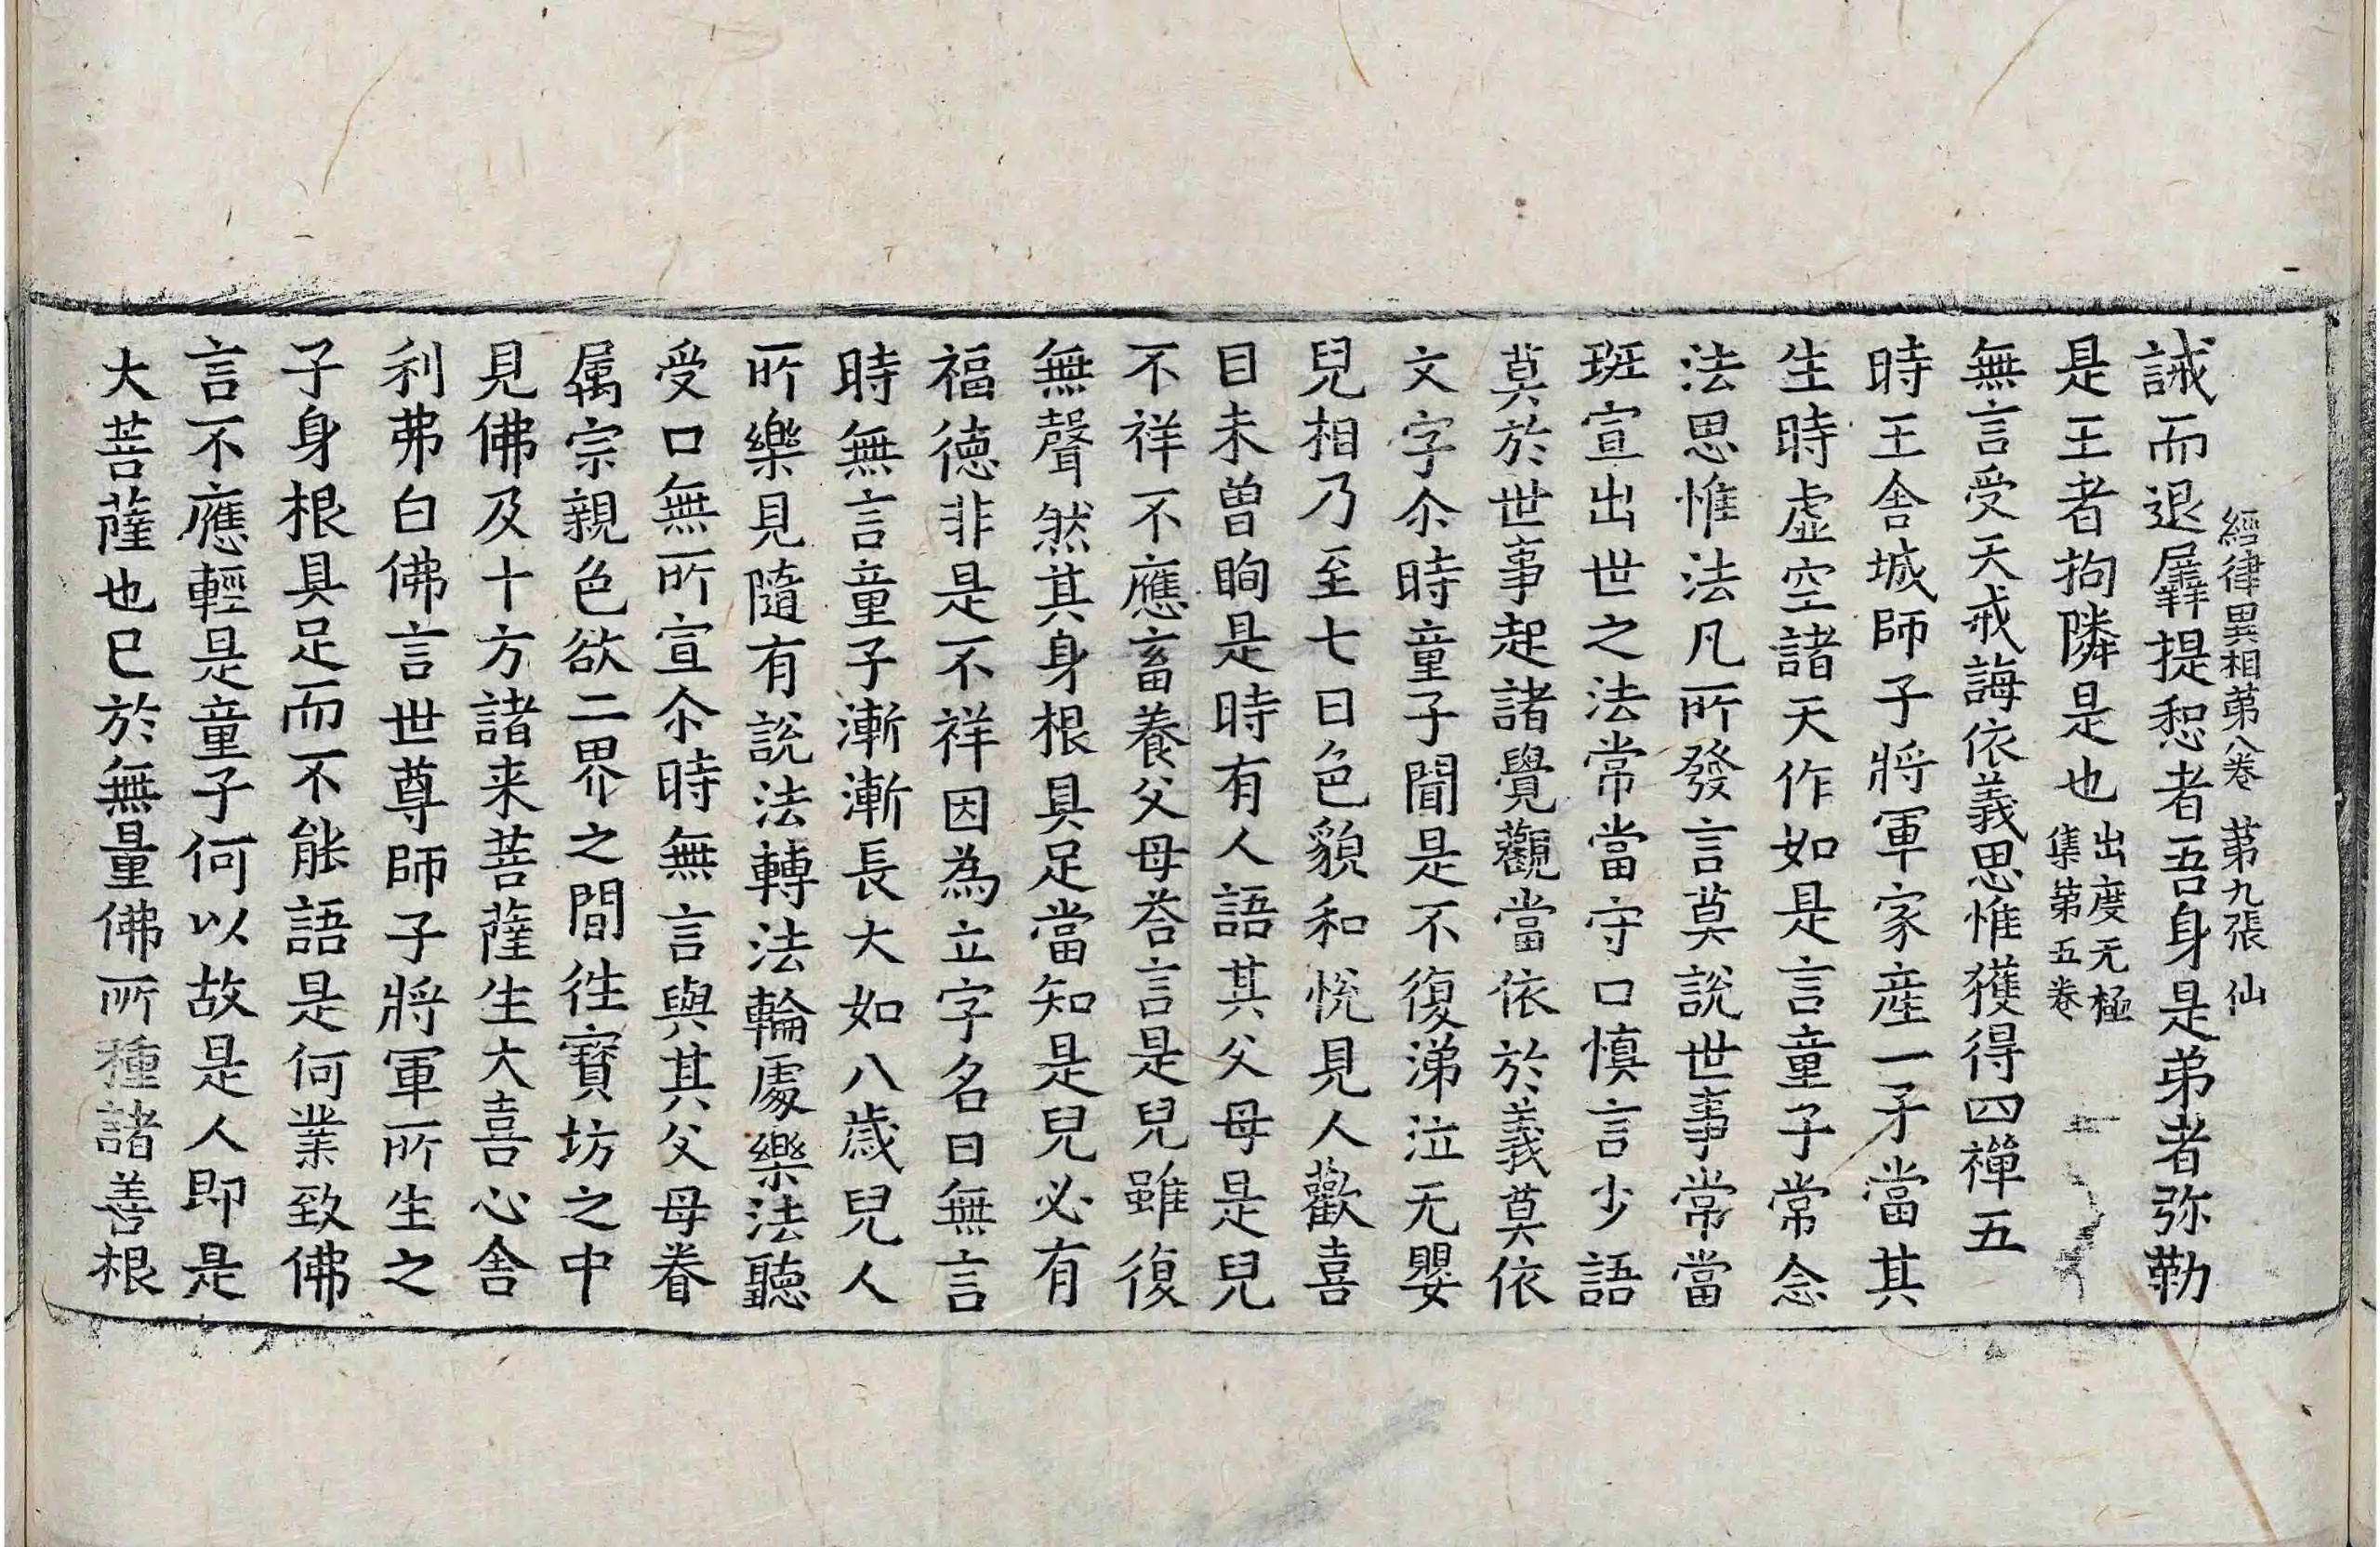 誡而退羼提惒者吾身是弟者弥勒
經律異相苐八卷　苐九張　仙
是王者拘隣是也出度无極集苐五卷
無言受天戒誨依義思惟獲得四禪五
時王舍城師子將軍家産一子當其
生時虚空諸天作如是言童子常念
法思惟法凡所發言莫説世事常當
班宣出世之法常當守口慎言少語
莫於世事起諸覺觀當依於義莫依
文字尒時童子聞是不復涕泣无嬰
兒相乃至七日色貌和恱見人歡喜
目未曽眴是時有人語其父母是兒
不祥不應畜養父母荅言是兒雖復
無聲然其身根具足當知是兒必有
福徳非是不祥因為立字名曰無言
時無言童子漸漸長大如八歳兒人
所樂見隨有説法轉法輪處樂法聽
受口無所宣尒時無言與其父母眷
属宗親色欲二界之間徃寳坊之中
見佛及十方諸来菩薩生大喜心舍
利弗白佛言世尊師子將軍所生之
子身根具足而不能語是何業致佛
言不應輕是童子何以故是人即是
大菩薩也已於無量佛所種諸善根